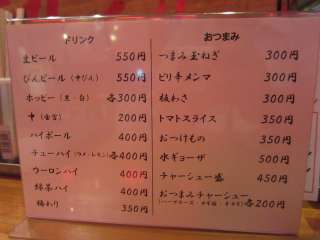 ドリンク
生ビール 550円
びんビール (中びん) 550円
ホッピー (黒・白) 各300円
中 (金宮) 200円
ハイボール 400円
チューハイ (ウメ・レモン) 各400円
ウーロンハイ 400円
緑茶ハイ 400円
梅わり 350円
おつまみ
つまみ玉ねぎ 300円
ピリ辛メンマ 300円
板わさ 300円
トマトスライス 350円
おつけもの 350円
水ギョーザ 500円
チャーシュー盛 450円
おつまみチャーシュー
各200円